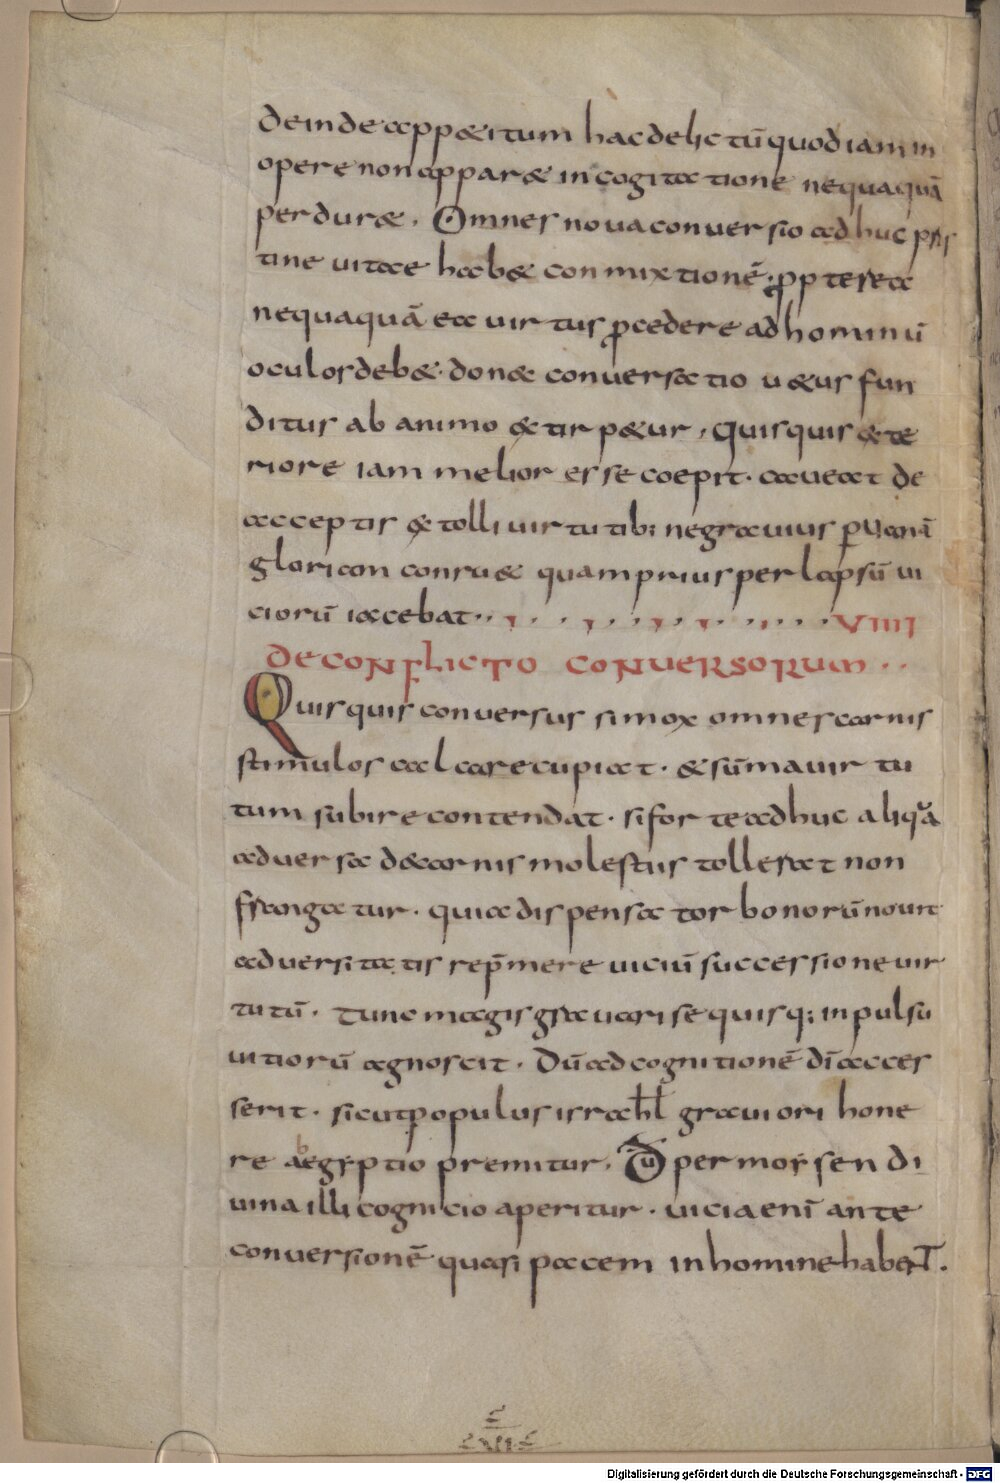 deinde appetitum hac delictū quod iam in
opere non apparet in cogitatione nequaquā
perduret. Omnes noua conuersio adhuc pris
tine uitae habet conmixtionē. ppterea
nequaquā ea uirtus pcedere ad hominū
oculos debet. donec conuersatio uetus fun
ditus ab animo extirpetur. Quisquis exte
riore iam melior esse coepit. caueat de
acceptis extolli uirtutib; ne grauius p uanā
gloriam conruat quam prius per lapsū ui
ciorū iacebat. VIIII
DE CONFLICTO CONUERSORUM
Quisquis conuersus si mox omnes carnis
stimulos calcare cupiat. et sūma uir tu
tum subire contendat. si forte adhuc aliqua
aduersa de carnis molestiis tollerat non
frangatur. quia dispensator bonorū nouit
aduersitatis repmere uiciū successione uir
tutū. Tunc magis grauari se quisq; inpulsu
uitiorū agnoscit. Dū ad cognitionē dī acces
serit. sicut populus israhl grauiori hone
re aegyptio premitur. Dū per morsen di
uina illi cognicio aperitur. uicia enī ante
conuersionē quasi pacem in homine habent.
Digitalisierung gefördert durch die Deutsche Forschungsgemeinschaft - DFG